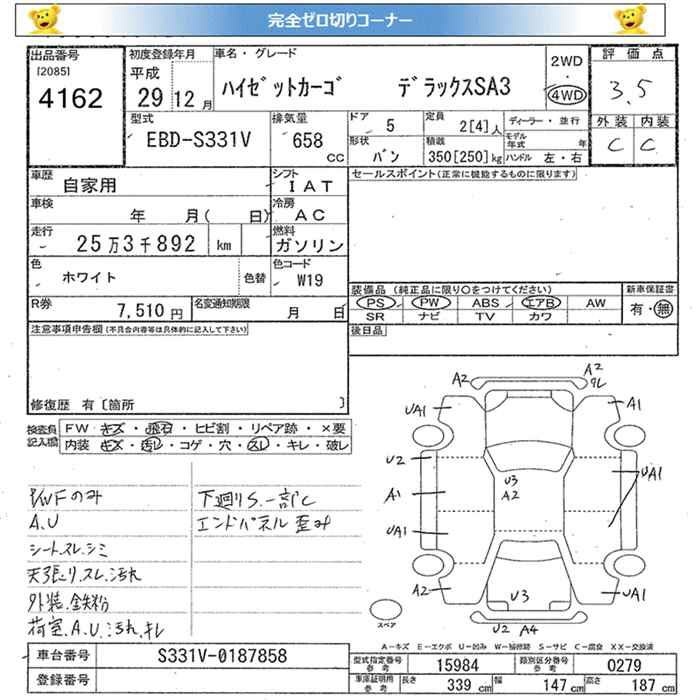 完全ゼロ切りコーナー
出品番号 初度登録年月 車名・グレード 評価点
[2085] 平成 2WD
4162 29 12月 ハイゼットカーゴ デラックスSA3 ・ 4WD 3.5
型式 排気量 ドア 5 定員 2[4]人 ディーラー・並行 外装 内装
EBD-S331V 658 cc 形状 バン 積載 350[250]kg モデル年式 年 ハンドル 左・右 C C
車歴 自家用 シフト IAT セールスポイント(正常に機能するものに限ります)
車検 年 月( 日) 冷房 AC
走行 25万3千892 km 燃料 ガソリン
色 ホワイト 色替 色コード W19
装備品 (純正品に限り○をつけてください) 新車保証書
R券 7,510円 名変通知期限 月 日 PS PW ABS エアB AW 有・無
SR ナビ TV カワ
注意事項申告欄(不具合内容等は具体的に記入して下さい) 後日品
修復歴 有 [箇所 ]
検査員記入欄 FW キズ・飛石・ヒビ割・リペア跡・×要
内装 キズ・汚レ・コゲ・穴・スレ・キレ・破レ
A2 A2
クレ
UA1 A1
U2
U3
A2
A1 UA1
UA1
A2 U3 UA1
U2 A4
スペア
A.U 下廻りS.一部C
シートスレ.シミ エンドパネル歪み
天張り.スレ.汚れ
外装.鉄粉
荷室.A.U.汚れ.キレ
A-キズ E-エクボ U-凹み W-補修跡 S-サビ C-腐食 XX-交換済
車台番号 S331V-0187858 型式指定番号参考 15984 類別区分番号参考 0279
登録番号 車庫証明用参考 長さ 339cm 幅 147cm 高さ 187cm